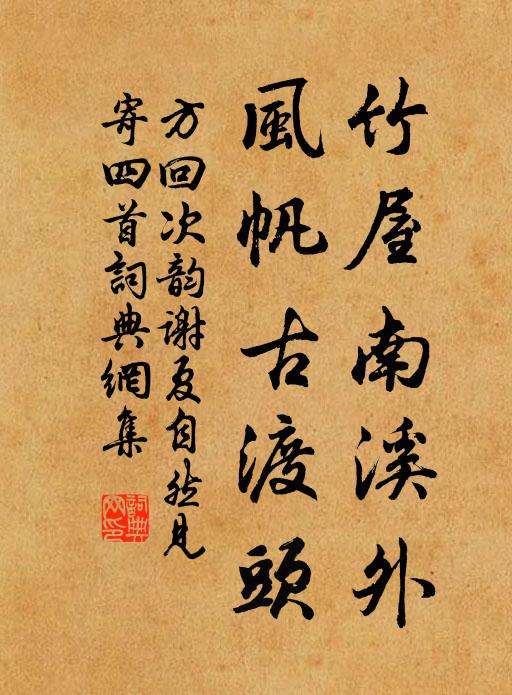 竹屋南溪外
風帆古渡頭
方回次韵謝夏自然見
寄四首詞典網集
詞典網印